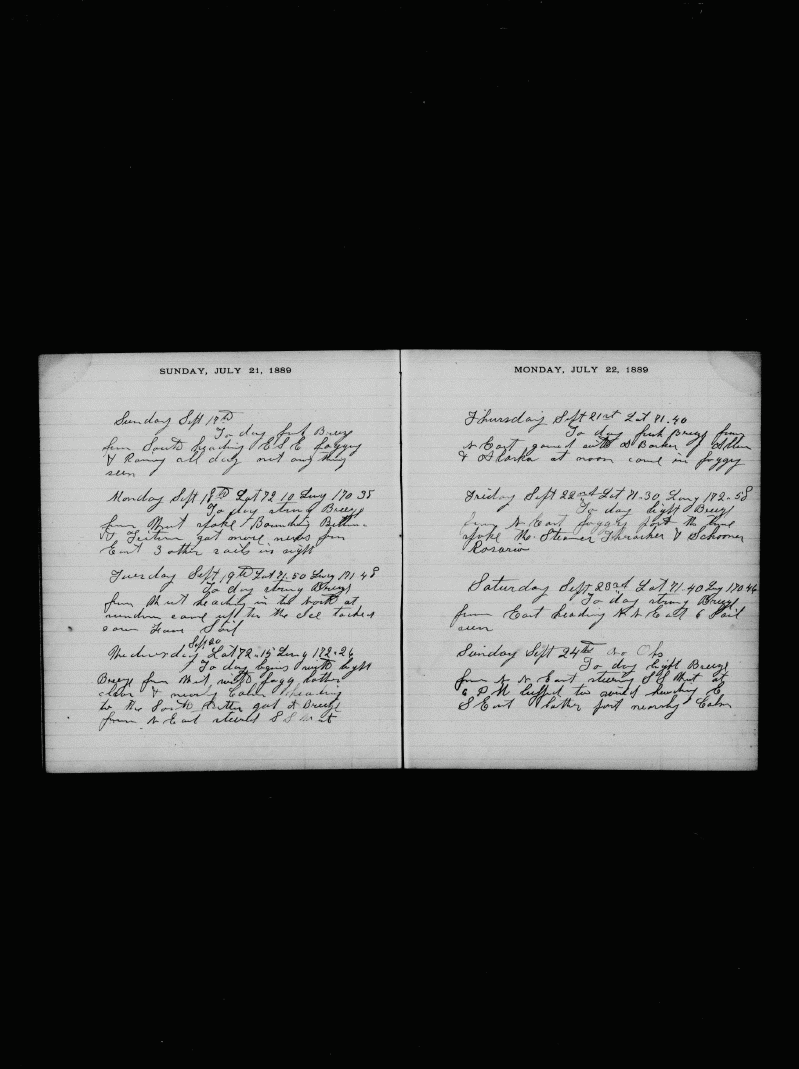 SUNDAY, JULY 21, 1889
Sunday Sept 17th
To day fresh Breeze
from South heading E S E foggy
& Rainy all day not any thing
seen
Monday Sept 18th Lat 72.10 Long 170 35
To day strong Breeze
from West spoke Bounding Billow
& got more news from
East 3 other sails in sight
Tuesday Sept 19th Lat 71.50 Long 171 48
To day strong Breeze
from West heading in to the North at
sundown came up to the Ice tacked
saw Four Sail
Sept 20
Wednesday Lat 72.15 Long 172.26
To day begins with light
Breeze from West with fogg latter
clear & nearly Calm heading
to the South latter got a Breeze
from N East steered S S West
MONDAY, JULY 22, 1889
Thursday Sept 21st Lat 71.40
To day fresh Breeze from
N East gamed with Barker
& Alaska at noon came in foggy
Friday Sept 22nd Lat 71.30 Long 172.58
To day light Breeze
from N East foggy part the time
spoke the Steamer Thrasher & Schooner
Rosario
Saturday Sept 23rd Lat 71.40 Lng 170 46
To day strong Breeze
from East heading N N East 6 Sail
seen
Sunday Sept 24th No Obs
To day light Breeze
from N N East steering S S West at
6 P M luffed too wind heading E
S East latter part nearly Calm